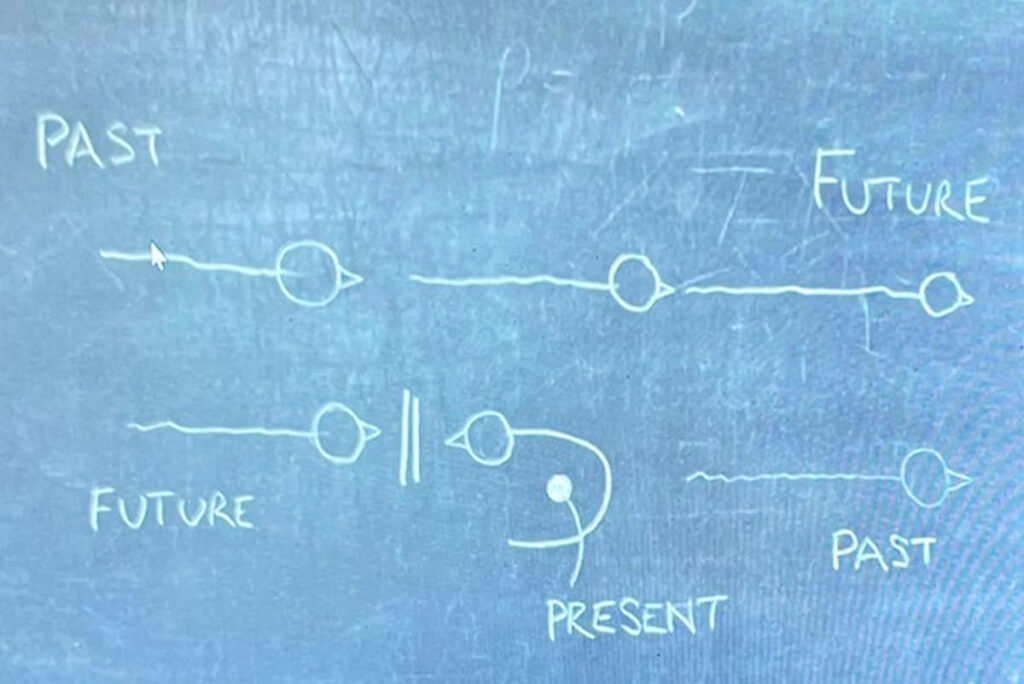 PAST
FUTURE
FUTURE
PAST
PRESENT